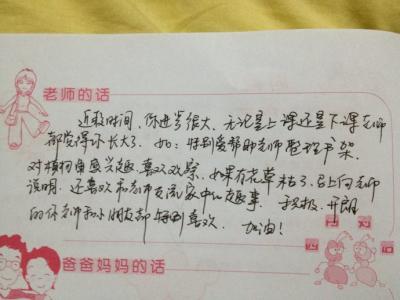 老师的话
近段时间,你进步很大,无论是上课还是下课老师
都觉得你长大了。如:特别爱帮助老师整理书架,
对植物角感兴趣,喜欢观察,如果有花草枯了,马上向老师
说明,还喜欢和老师交流家中的趣事。积极、开朗
的你老师和小朋友都特别喜欢。加油!
爸爸妈妈的话